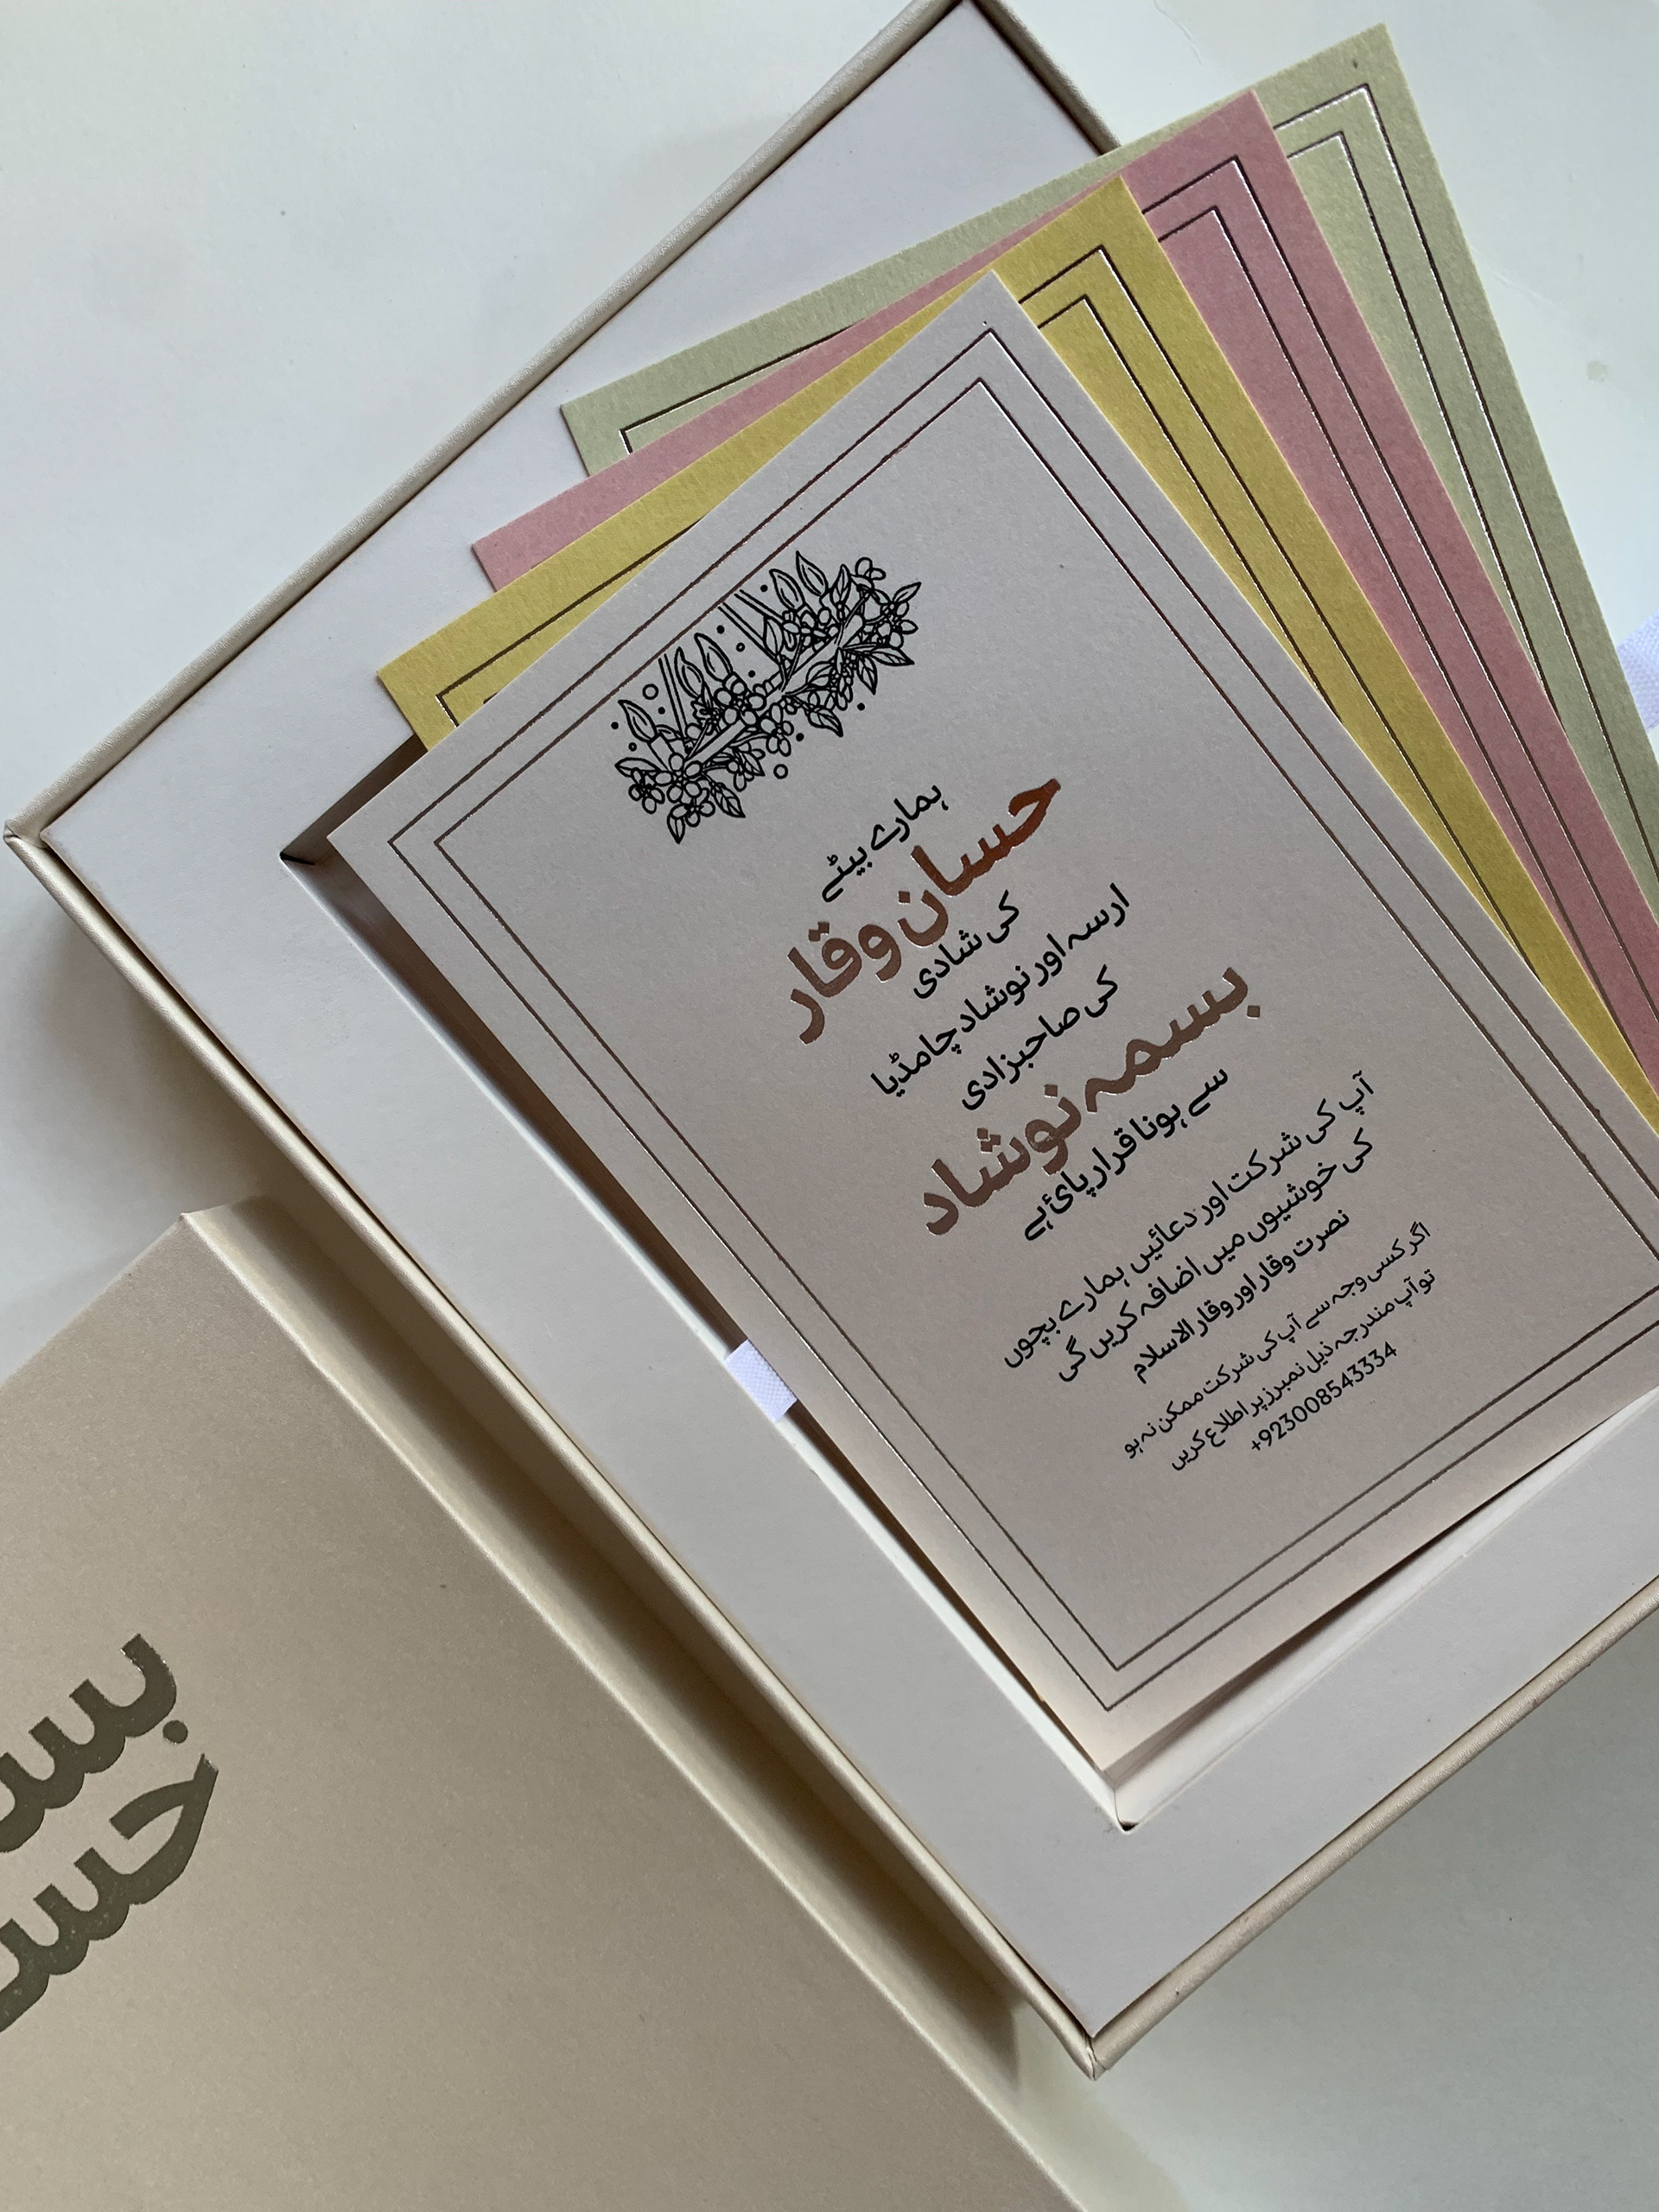 ہمارے بیٹے
حسان وقار
کی شادی
ارسہ اور نوشاد چامڈیا
کی صاحبزادی
بسمہ نوشاد
سے ہونا قرار پائ ہے
آپ کی شرکت اور دعائیں ہمارے بچوں
کی خوشیوں میں اضافہ کریں گی
نصرت وقار اور وقار الاسلام
اگر کسی وجہ سے آپ کی شرکت ممکن نہ ہو
تو آپ مندرجہ ذیل نمبرز پر اطلاع کریں
+923008543334